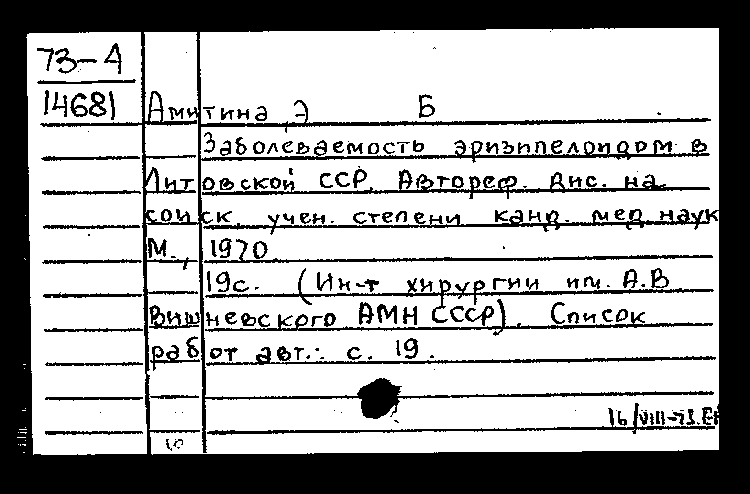 73-А
14681
Амитина, Э Б
Заболеваемость эризипелоидом в
Литовской ССР. Автореф. дис. на
соиск. учен. степени канд. мед наук
М., 1970
19с. (Ин-т хирургии им. А.В
Вишневского АМН СССР). Список
работ авт.: с. 19.
16/VIII-73.
10